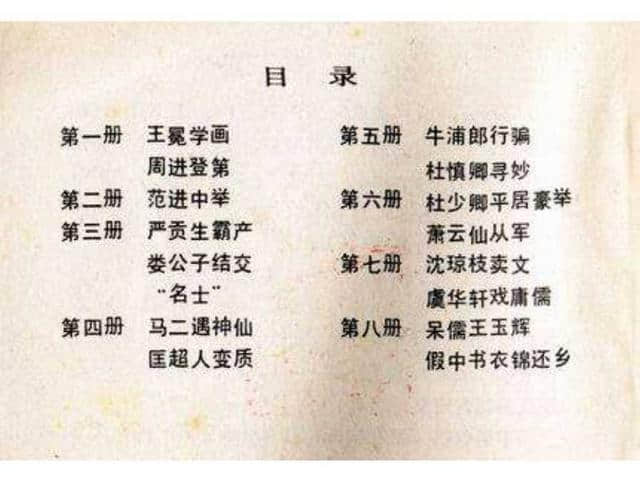 目 录
第一册 王冕学画
周进登第
第二册 范进中举
第三册 严贡生霸产
娄公子结交
“名士”
第四册 马二遇神仙
匡超人变质
第五册 牛浦郎行骗
杜慎卿寻妙
第六册 杜少卿平居豪举
萧云仙从军
第七册 沈琼枝卖文
虞华轩戏庸儒
第八册 呆儒王玉辉
假中书衣锦还乡